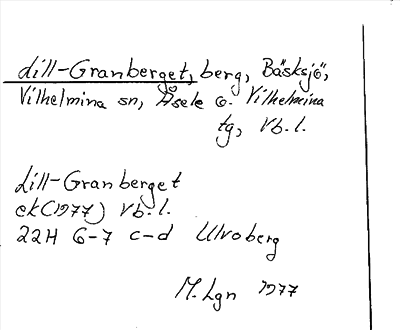 Lill-Granberget, berg, Bäsksjö,
Vilhelmina sn, Åsele o. Vilhelmina
tg, Vb.l.
Lill-Granberget
ek(1977) Vb.l.
22H 6-7 c-d Ulvoberg
M.Lgn 1977